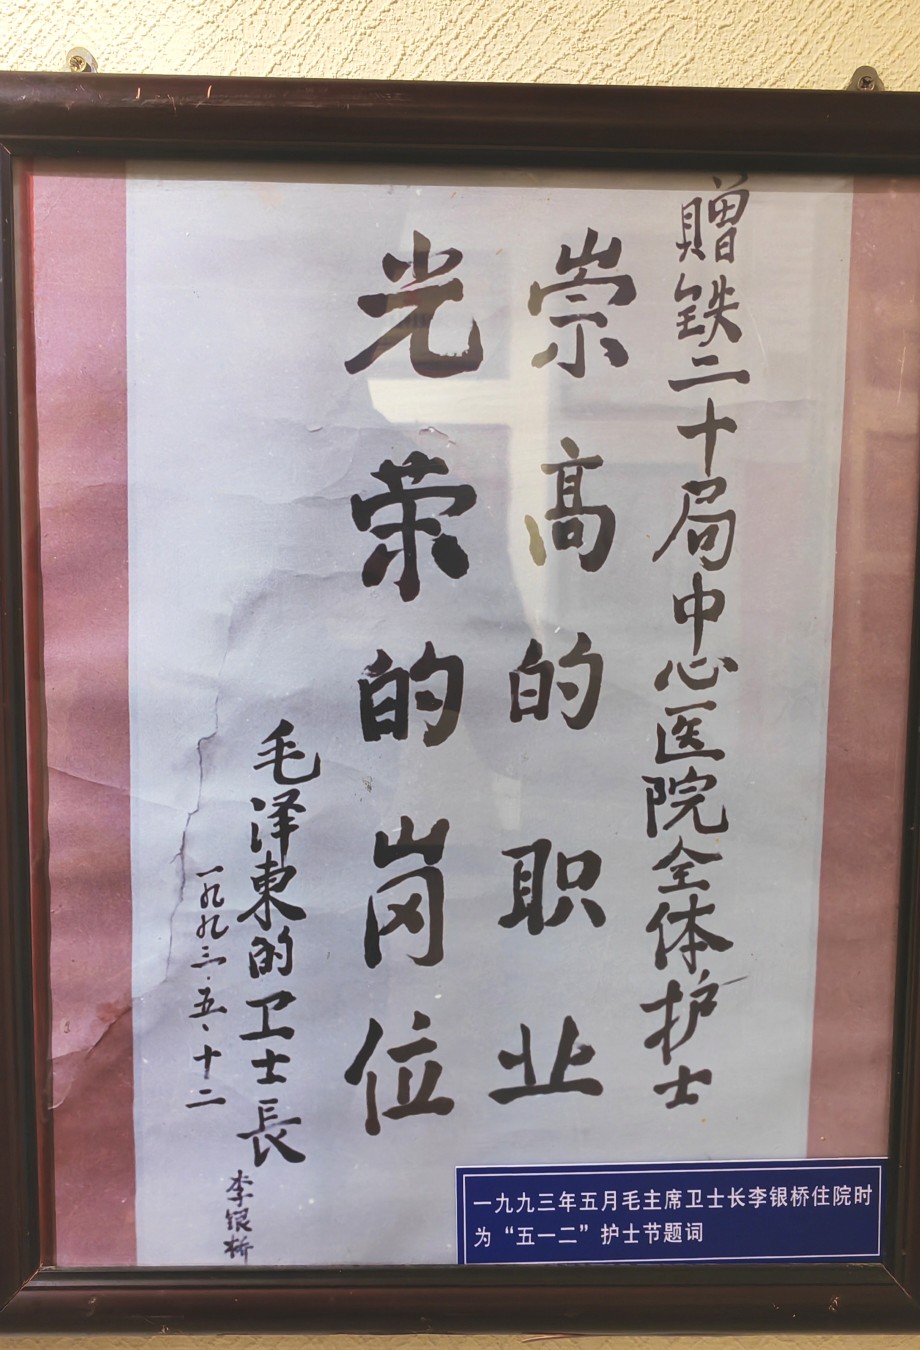 贈铁二十局中心医院全体护士
崇高的职业
光荣的岗位
毛泽東的卫士長
李银桥
一九九三·五·十二
一九九三年五月毛主席卫士长李银桥住院时
为“五一二”护士节题词